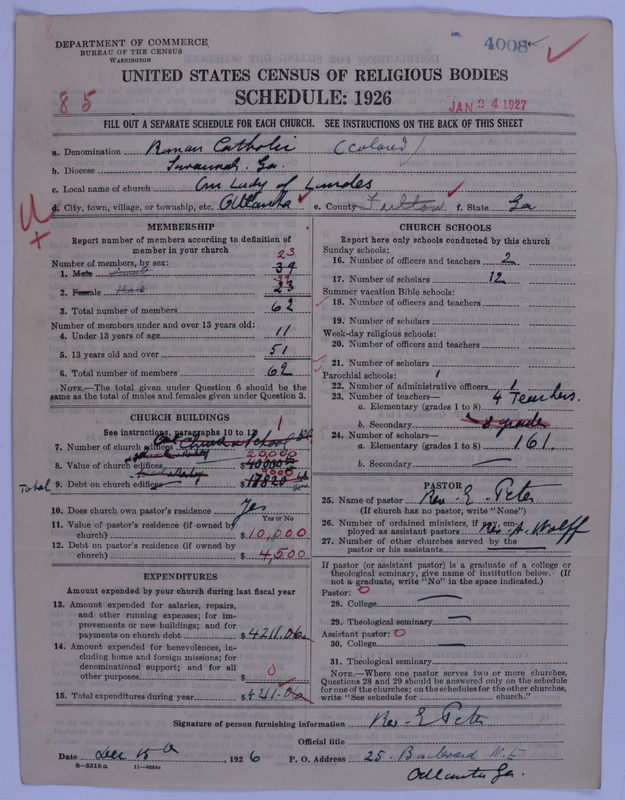 DEPARTMENT OF COMMERCE
BUREAU OF THE CENSUS
WASHINGTON
4008
UNITED STATES CENSUS OF RELIGIOUS BODIES
85
SCHEDULE: 1926
JAN 24 1927
FILL OUT A SEPARATE SCHEDULE FOR EACH CHURCH. SEE INSTRUCTIONS ON THE BACK OF THIS SHEET
a. Denomination Roman Catholic (colored)
b. Diocese Savannah, Ga.
c. Local name of church Our Lady of Lourdes
d. City, town, village, or township, etc. Atlanta e. County Fulton f. State Ga
MEMBERSHIP
Report number of members according to definition of member in your church
Number of members, by sex:
23
1. Male 39
2. Female 23
3. Total number of members 62
Number of members under and over 13 years old:
4. Under 13 years of age 11
5. 13 years old and over 51
6. Total number of members 62
NOTE.—The total given under Question 6 should be the same as the total of males and females given under Question 3.
CHURCH BUILDINGS
See instructions, paragraphs 10 to 12
7. Number of church edifices 1 Church & School
20,000
8. Value of church edifices $40000
Total
9. Debt on church edifices $17820
10. Does church own pastor's residence? Yes
Yes or No
11. Value of pastor's residence (if owned by church) $10,000
12. Debt on pastor's residence (if owned by church) $4,500
EXPENDITURES
Amount expended by your church during last fiscal year
13. Amount expended for salaries, repairs, and other running expenses; for improvements or new buildings; and for payments on church debt $4211.06
14. Amount expended for benevolences, including home and foreign missions; for denominational support; and for all other purposes $0
15. Total expenditures during year $4211.06
CHURCH SCHOOLS
Report here only schools conducted by this church
Sunday schools:
16. Number of officers and teachers 2
17. Number of scholars 12
Summer vacation Bible schools:
18. Number of officers and teachers
19. Number of scholars
Week-day religious schools:
20. Number of officers and teachers
21. Number of scholars
Parochial schools: 1
22. Number of administrative officers 1
23. Number of teachers— 4 Teachers.
a. Elementary (grades 1 to 8)
b. Secondary 8 grade
24. Number of scholars—
a. Elementary (grades 1 to 8) 161.
b. Secondary —
PASTOR
25. Name of pastor Rev. E. Peter
(If church has no pastor, write "None")
26. Number of ordained ministers, if any, employed as assistant pastors Rev. A. Wolff
27. Number of other churches served by the pastor or his assistants —
If pastor (or assistant pastor) is a graduate of a college or theological seminary, give name of institution below. (If not a graduate, write "No" in the space indicated.)
Pastor: 0
28. College —
29. Theological seminary —
Assistant pastor: 0
30. College —
31. Theological seminary
NOTE.—Where one pastor serves two or more churches, Questions 28 and 29 should be answered only on the schedule for one of the churches; on the schedules for the other churches, write "See schedule for church."
Signature of person furnishing information Rev. E Peter
Official title
Date Dec 15, 1926 P. O. Address 25 Boulevard N.E
Atlanta Ga.
8—5519a 11—9084c